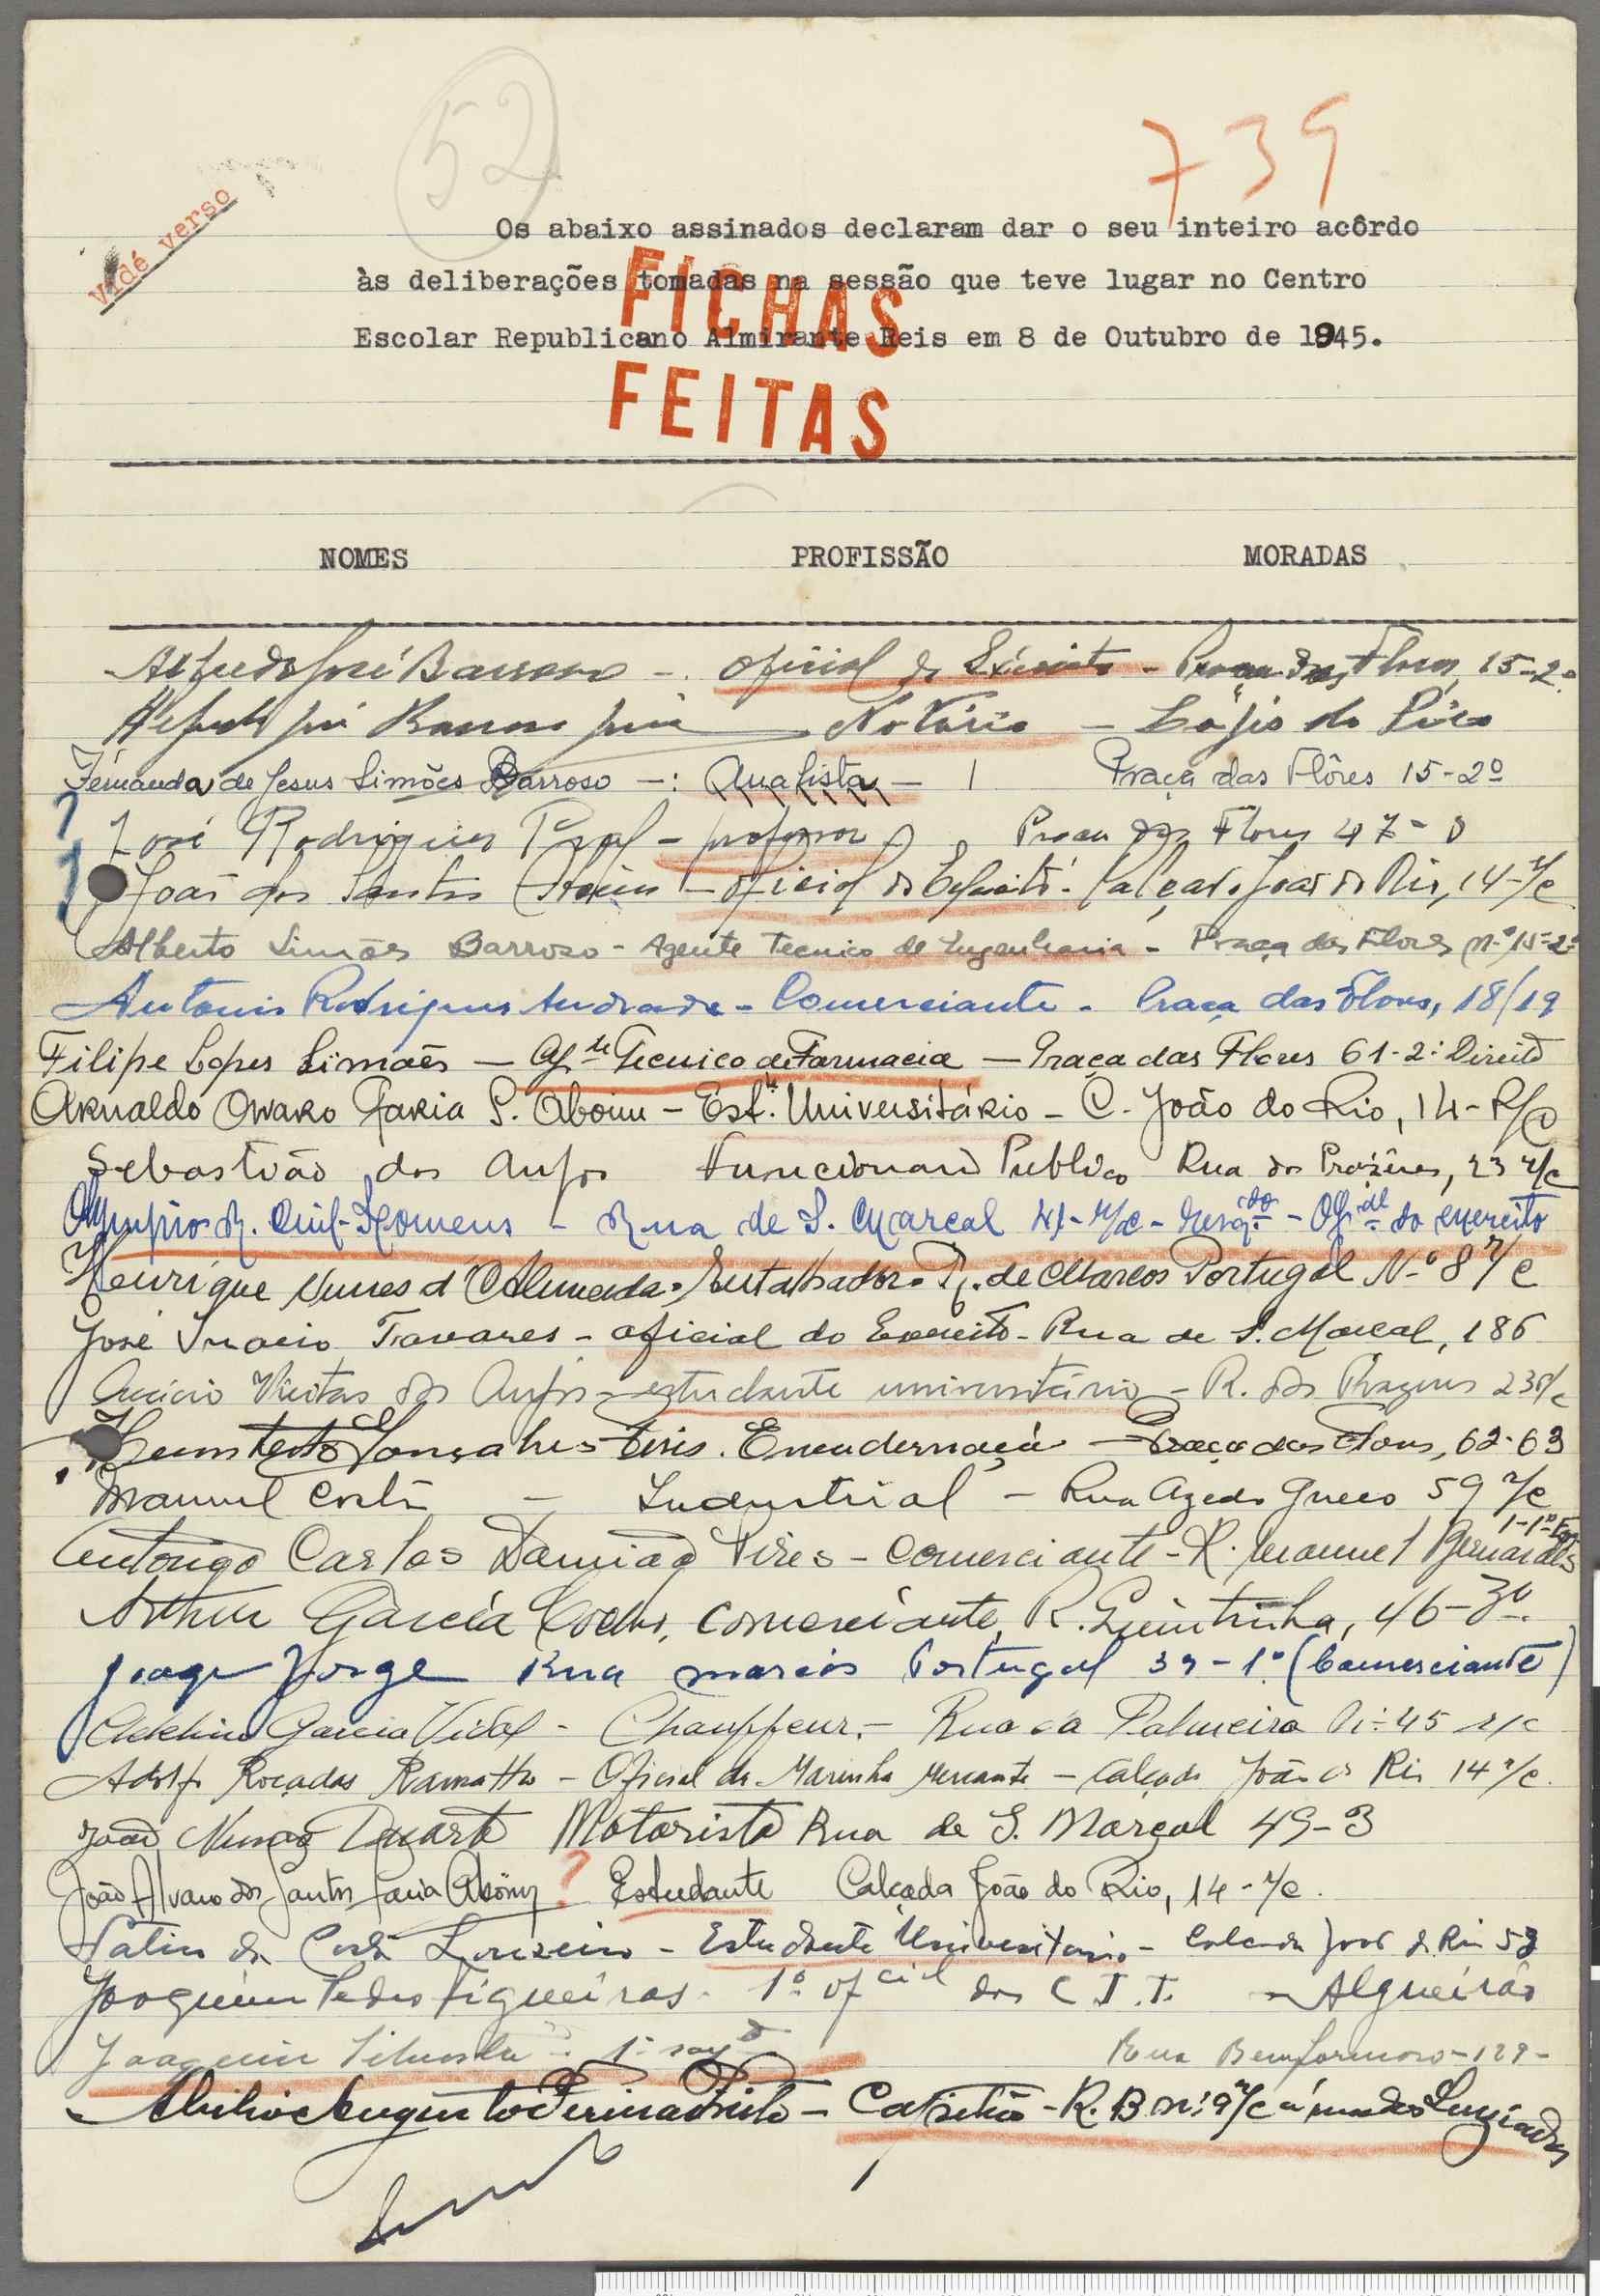 52
739
vidé verso
Os abaixo assinados declaram dar o seu inteiro acôrdo
às deliberações tomadas na sessão que teve lugar no Centro
Escolar Republicano Almirante Reis em 8 de Outubro de 1945.
FICHAS
FEITAS
NOMES PROFISSÃO MORADAS
Alfredo José Barroso - oficial do Exército - Praça das Flores, 15-2º
Notário
Fernanda de Jesus Simões Barroso -: - Praça das Flôres 15-2º
José Rodrigues - professor Praça das Flores 47-
João dos Santos - oficial do Exército - Calçada João do Rio, 14-r/c
Alberto Simões Barroso - Agente Tecnico de Engenharia - Praça das Flores nº 15-2º
Antonio Rodrigues Andrade - Comerciante - Praça das Flores, 18/19
Filipe Lopes Simões - Agte Tecnico de Farmacia - Praça das Flores 61-2º Direito
Arnaldo Faria S. Aboim - Est. Universitário - C. João do Rio, 14-R/C
Sebastião dos Anjos Funcionario Publico Rua dos Prazeres, 23 r/c
Olympio R. Quil-Homens - Rua de S. Marçal 41-r/c - - Ofial do exercito
Henrique Nunes d'Almeida - Entalhador - R. de Marcos Portugal Nº 8 r/c
José Inacio Tavares - oficial do Exercito - Rua de S. Marçal, 186
dos Anjos - estudante universitário - R. dos Prazeres 23 r/c
Gonçalves Pires. Encadernação - Praça das Flores, 62-63
Manuel Costa - Industrial - Rua Azedo Gneco 59 r/c
Antonio Carlos Damião Pires - Comerciante - R. Manuel Bernardes 1-1º
Arthur Garcia comerciante, R. Quintinha, 46-3º.
Jorge Rua marcos Portugal 39-1º (Comerciante)
Garcia Vidal - Chauffeur - Rua da Palmeira Nº 45 r/c
Adolfo Roçadas Ramalho - Oficial da Marinha Mercante - Calçada João do Rio 14 r/c.
João Nunes Duarte Motorista Rua de S. Marçal 49-3
João Alvaro dos Santos Faria Aboim ? Estudante Calçada João do Rio, 14-r/c.
da Costa - Estudante Universitario - Calçada João do Rio 53
Joaquim Pedro Figueiras - 1º ofcial dos C.T.T. - Algueirão
Joaquim - 1º Rua Bemformoso-129-
Abilio Augusto - Capitão - R. B nº 9 r/c